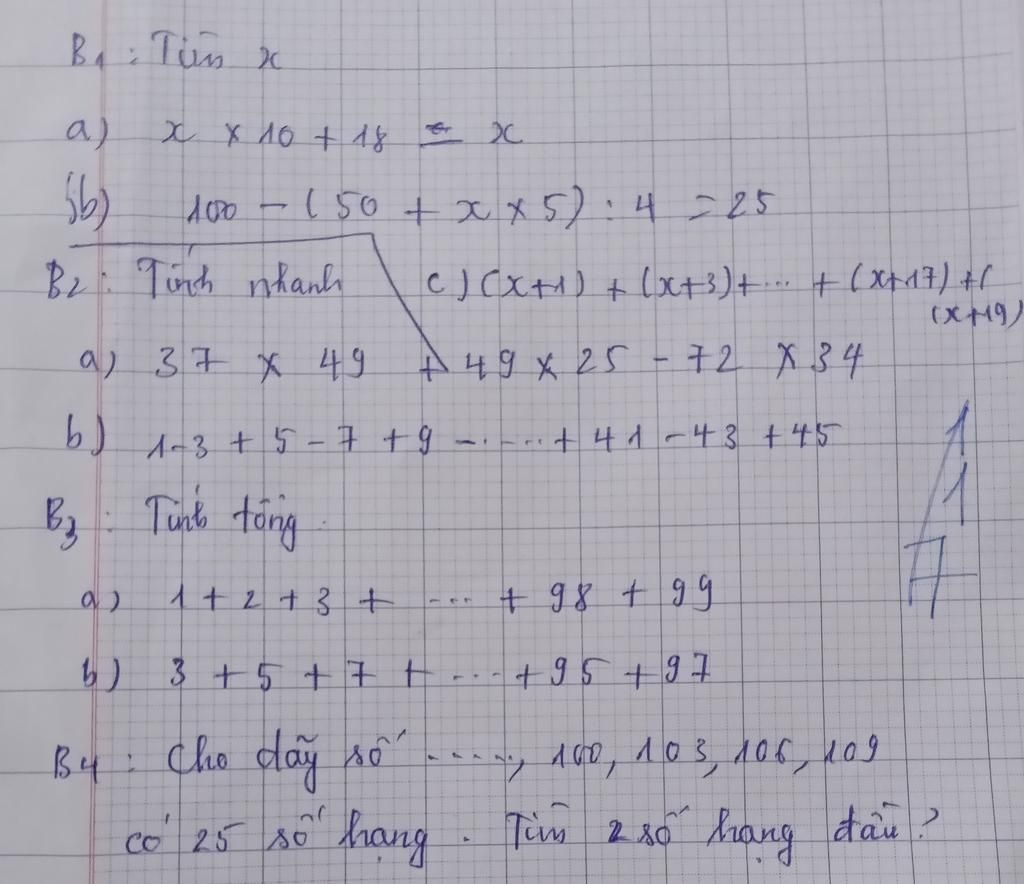 B1 : Tìm x
a) x × 10 + 18 = x
b) 100 - (50 + x × 5) : 4 = 25
B2 : Tính nhanh c) (x+1) + (x+3) + ... + (x+17) + (
(x+19)
a) 37 × 49 + 49 × 25 - 72 × 34
b) 1-3 + 5 - 7 + 9 - ..... + 41 - 43 + 45
B3 : Tính tổng.
a) 1 + 2 + 3 + ... + 98 + 99
b) 3 + 5 + 7 + ... + 95 + 97
B4 : Cho dãy số ....., 100, 103, 106, 109
có 25 số hạng. Tìm 2 số hạng đầu?